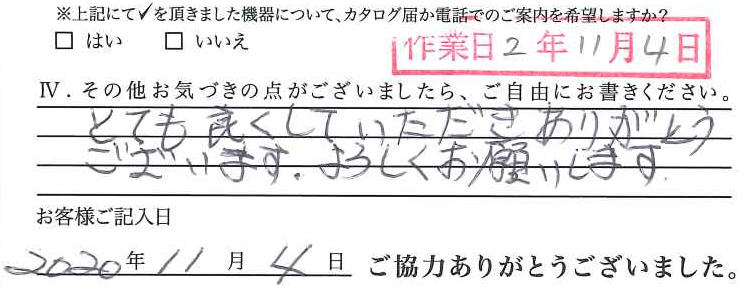 ※上記にて✓を頂きました機器について、カタログ届か電話でのご案内を希望しますか？
□ はい　□ いいえ
作業日2年11月4日
Ⅳ．その他お気づきの点がございましたら、ご自由にお書きください。
とても良くしていただきありがとう
ございます．よろしくお願いします．
お客様ご記入日
2020年11月4日 ご協力ありがとうございました。